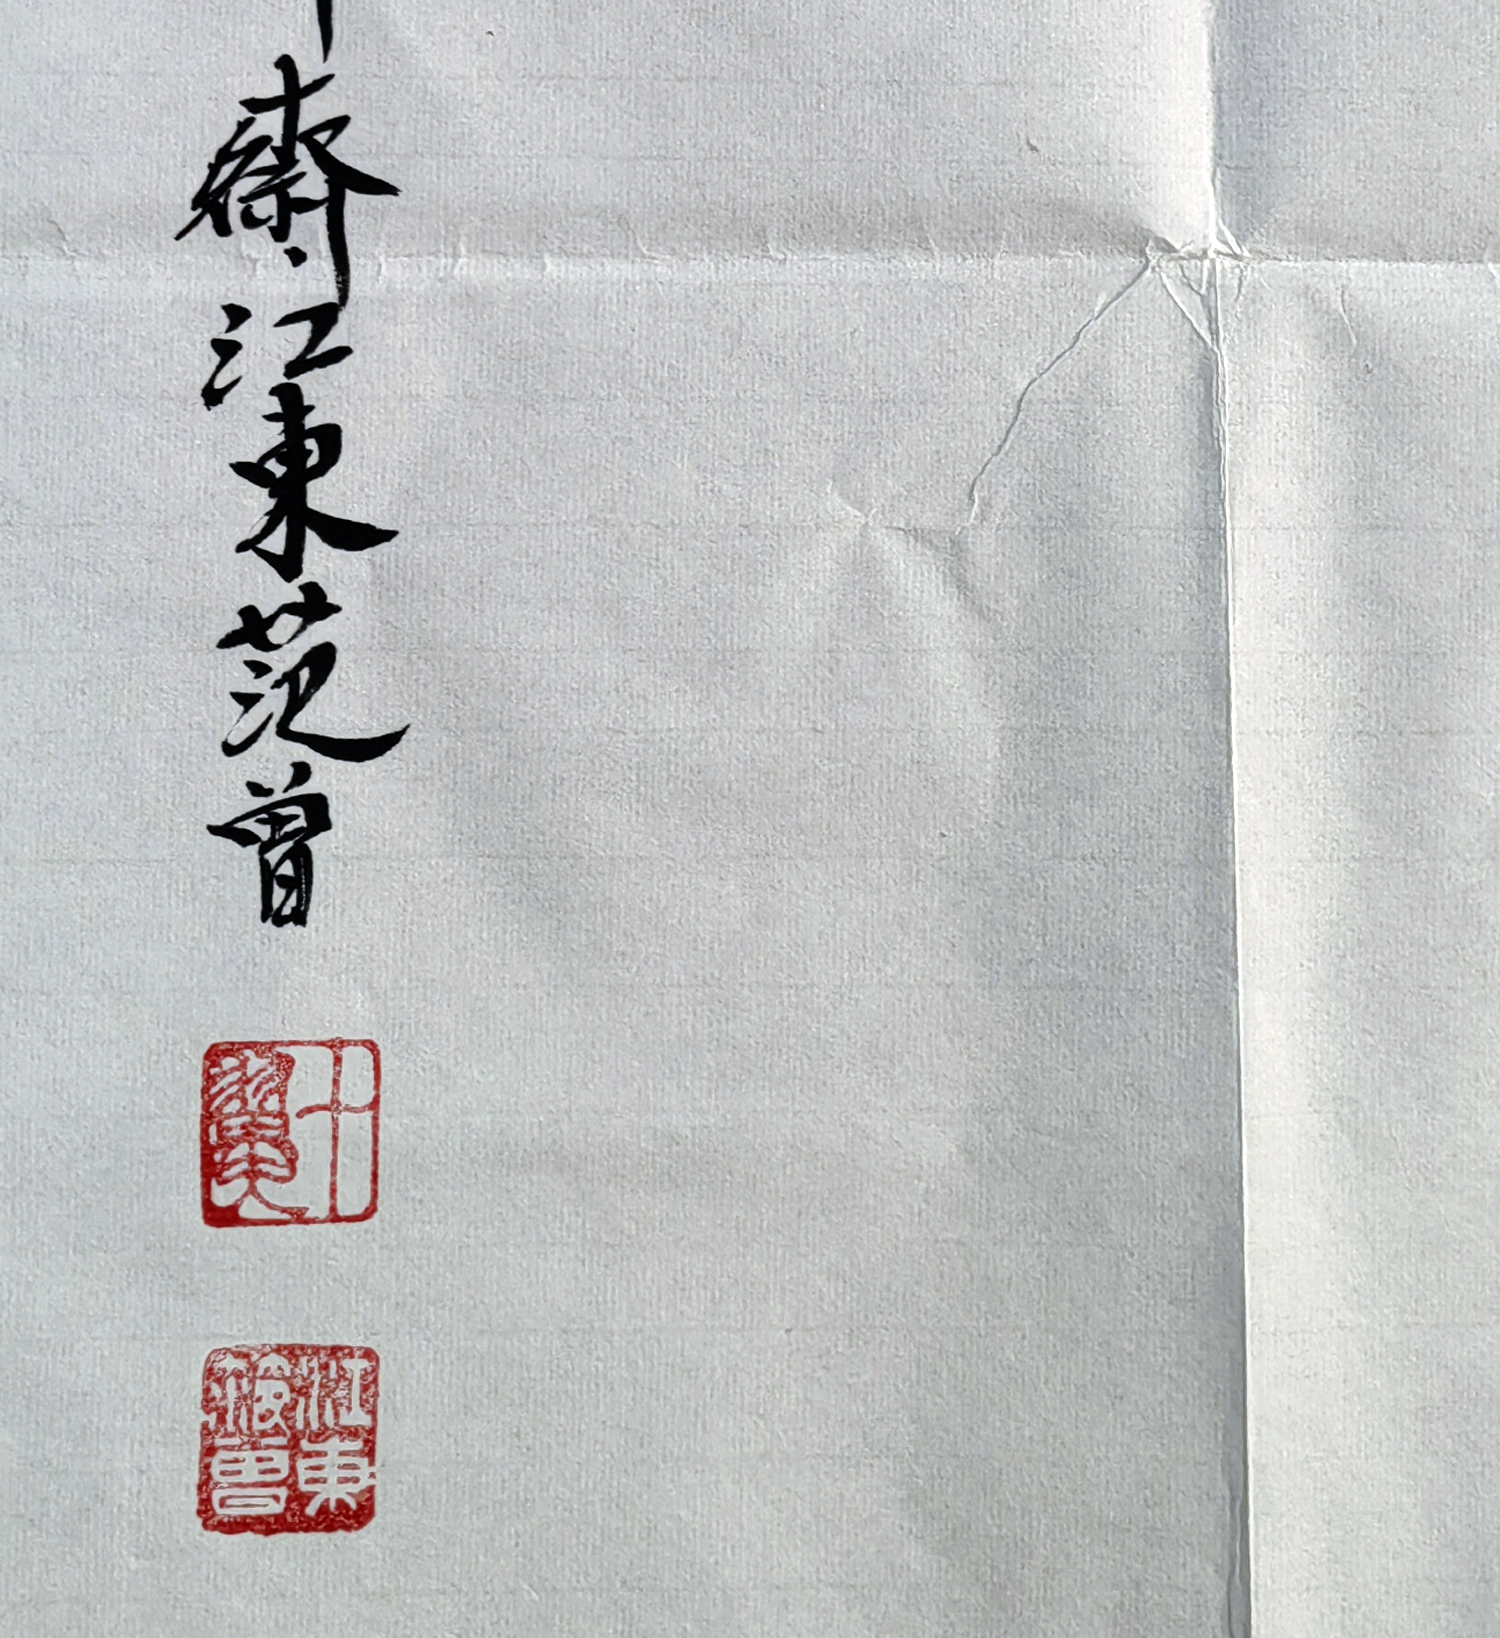 齋江東范曾
十翼
江東
范曾